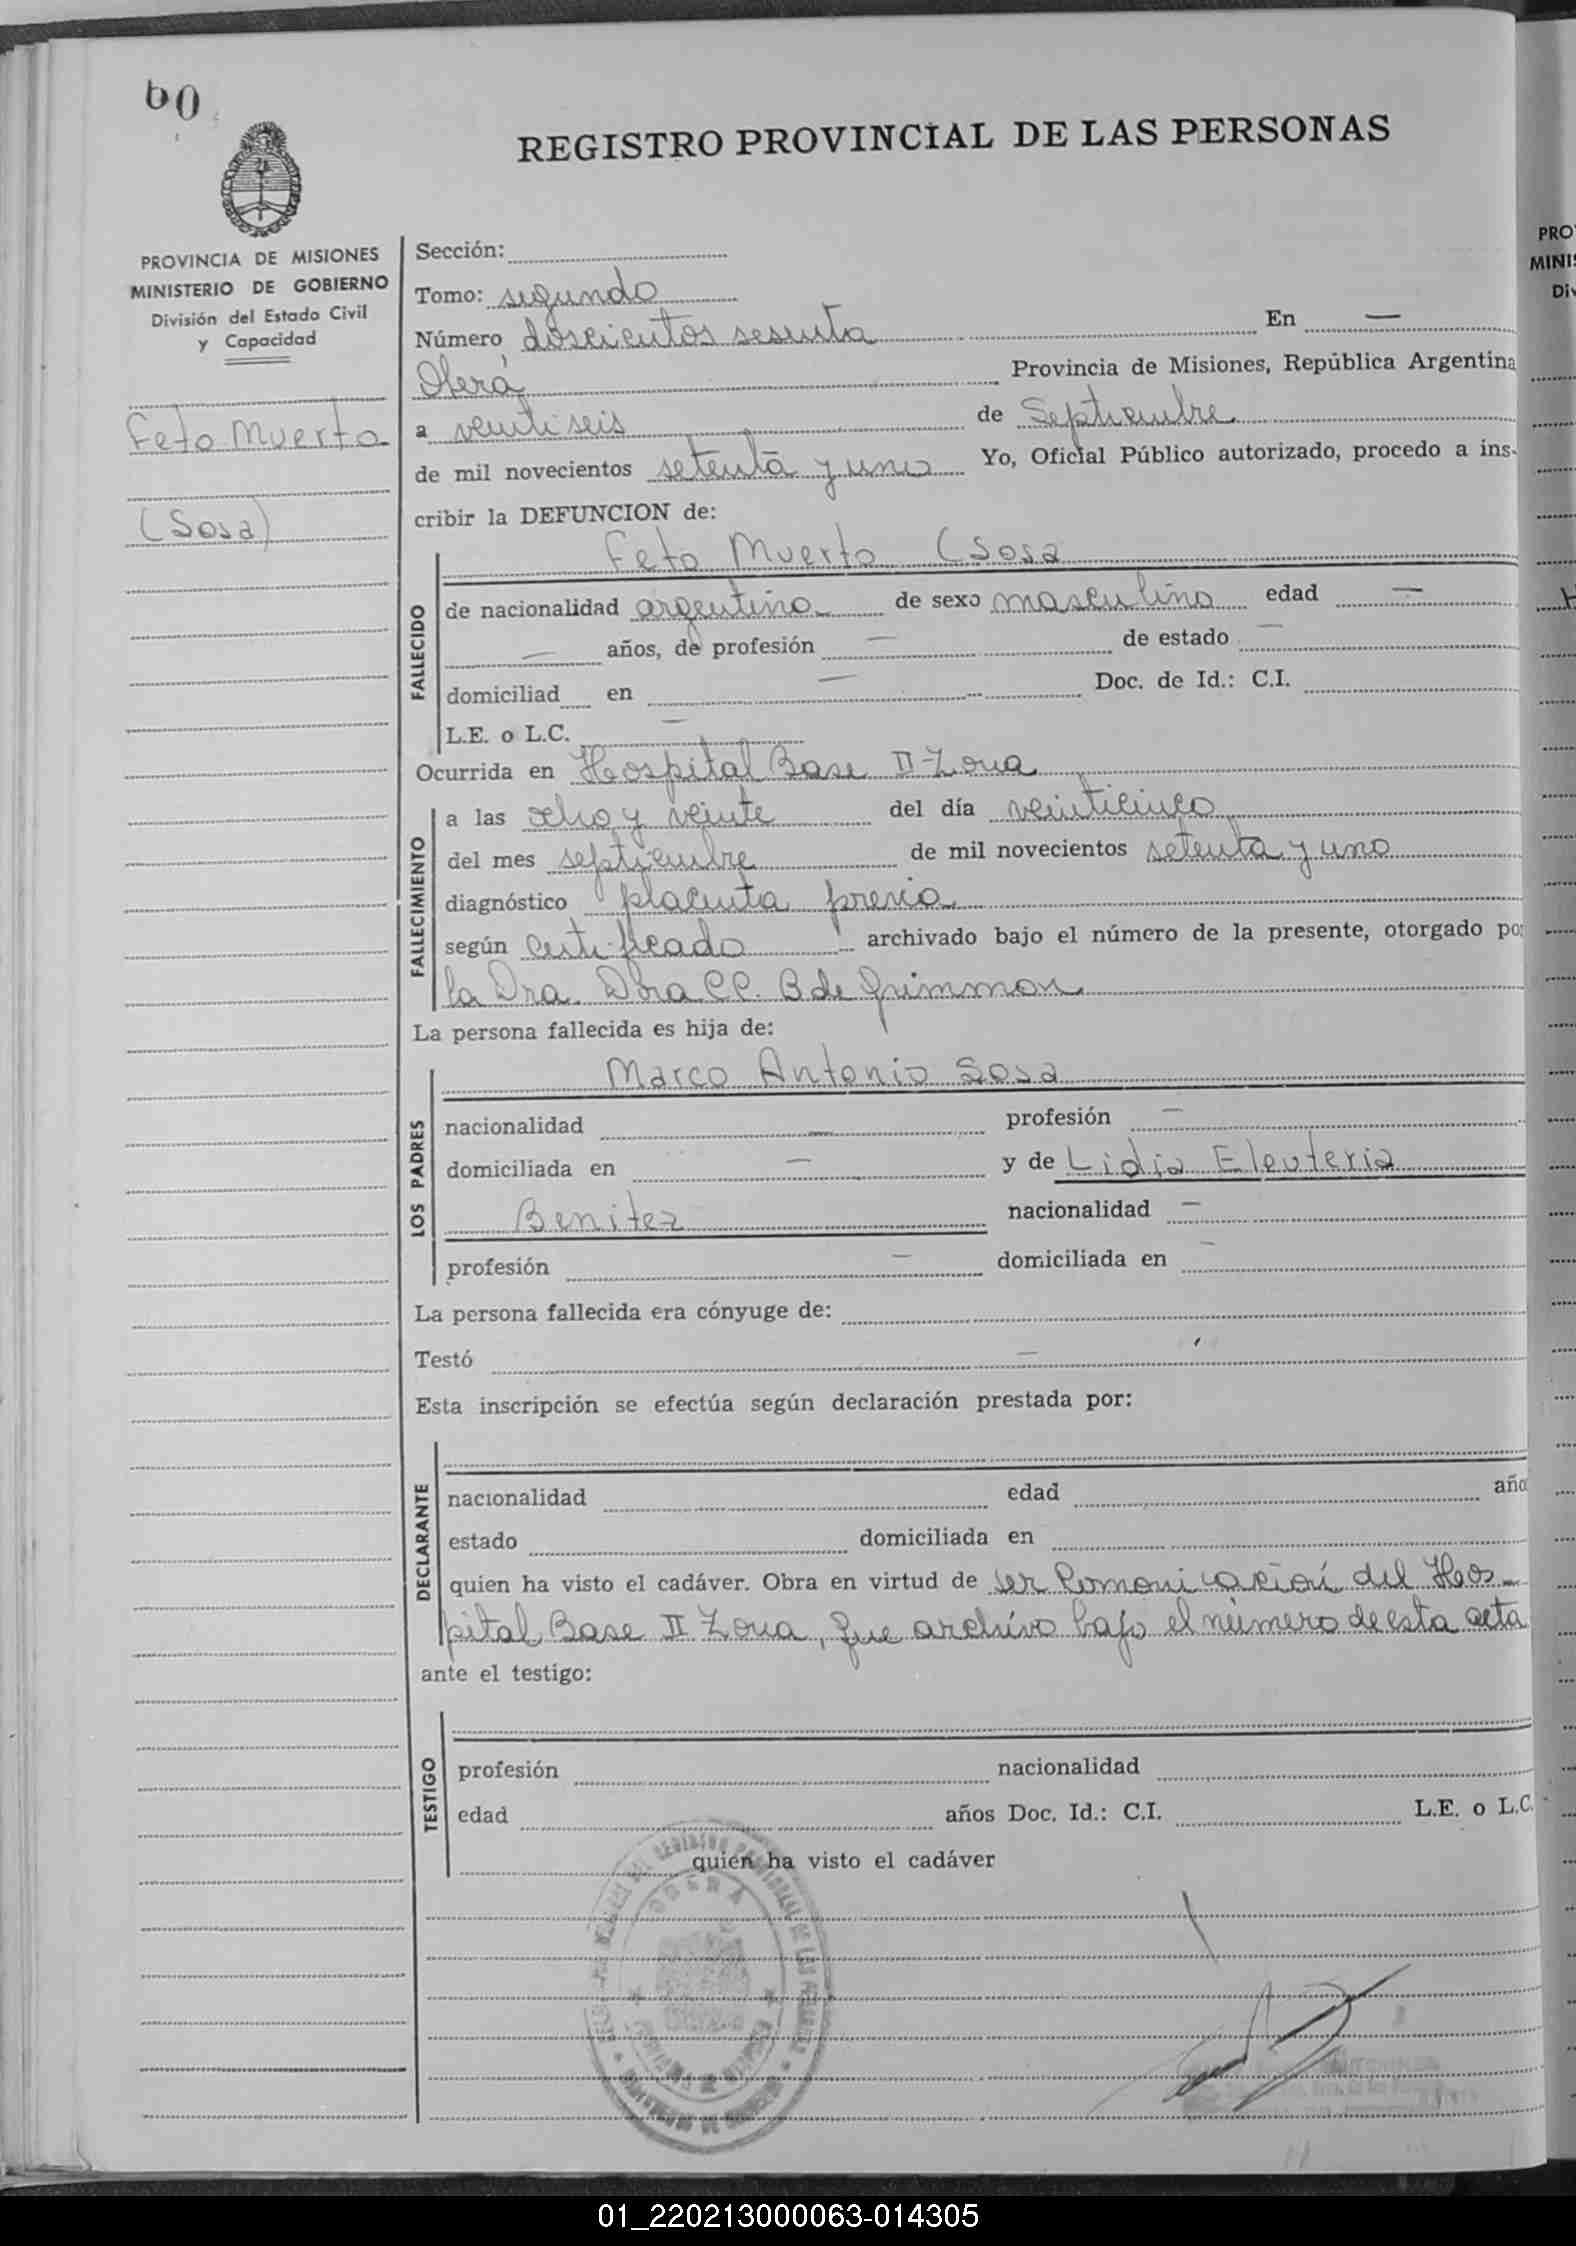 60
REGISTRO PROVINCIAL DE LAS PERSONAS
PROVINCIA DE MISIONES
MINISTERIO DE GOBIERNO
División del Estado Civil
y Capacidad
Feto Muerto
(Sosa)
Sección:
Tomo: segundo
Número doscientos sesenta En —
Oberá Provincia de Misiones, República Argentina
a veintiseis de Septiembre
de mil novecientos setenta y uno Yo, Oficial Público autorizado, procedo a ins-
cribir la DEFUNCION de:
Feto Muerto (Sosa
FALLECIDO
de nacionalidad argentino de sexo masculino edad —
— años, de profesión — de estado —
domiciliad en — Doc. de Id.: C.I.
L.E. o L.C. —
Ocurrida en Hospital Base II-Zona
FALLECIMIENTO
a las ocho y veinte del día veinticinco
del mes septiembre de mil novecientos setenta y uno
diagnóstico placenta previa
según certificado archivado bajo el número de la presente, otorgado po
la Dra. B de Grimmon
La persona fallecida es hija de:
Marco Antonio Sosa
LOS PADRES
nacionalidad — profesión —
domiciliada en — y de Lidia Eleuteria
Benitez nacionalidad —
profesión — domiciliada en —
La persona fallecida era cónyuge de:
Testó —
Esta inscripción se efectúa según declaración prestada por:
DECLARANTE
nacionalidad edad año
estado domiciliada en
quien ha visto el cadáver. Obra en virtud de ser Comonicación del Hos-
pital Base II Zona, que archivo bajo el número de esta acta
ante el testigo:
TESTIGO
profesión nacionalidad
edad años Doc. Id.: C.I. L.E. o L.C.
quien ha visto el cadáver
OBERA
PRO
MINI
Di
01_220213000063-014305